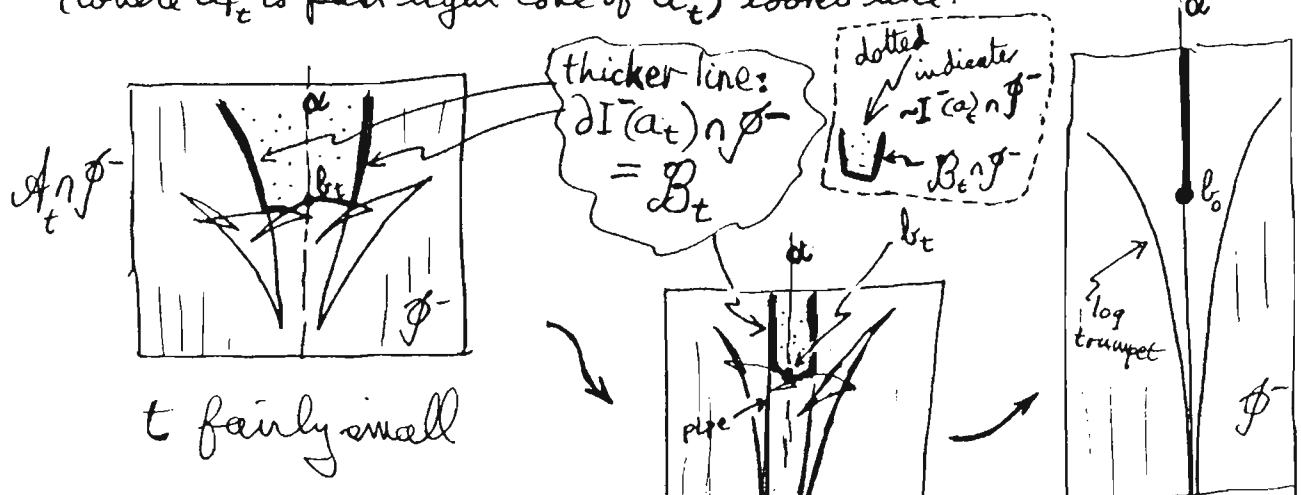 (where 𝒜_t is past light cone of a_t) looks like:
α
𝒜_t ∩ 𝒥⁻
b_t
𝒥⁻
t fairly small
thicker line:
∂I⁻(a_t) ∩ 𝒥⁻
= ℬ_t
dotted
indicates
~I⁻(a_t) ∩ 𝒥⁻
ℬ_t ∩ 𝒥⁻
α
b_t
pipe
α
b₀
log
trumpet
𝒥⁻